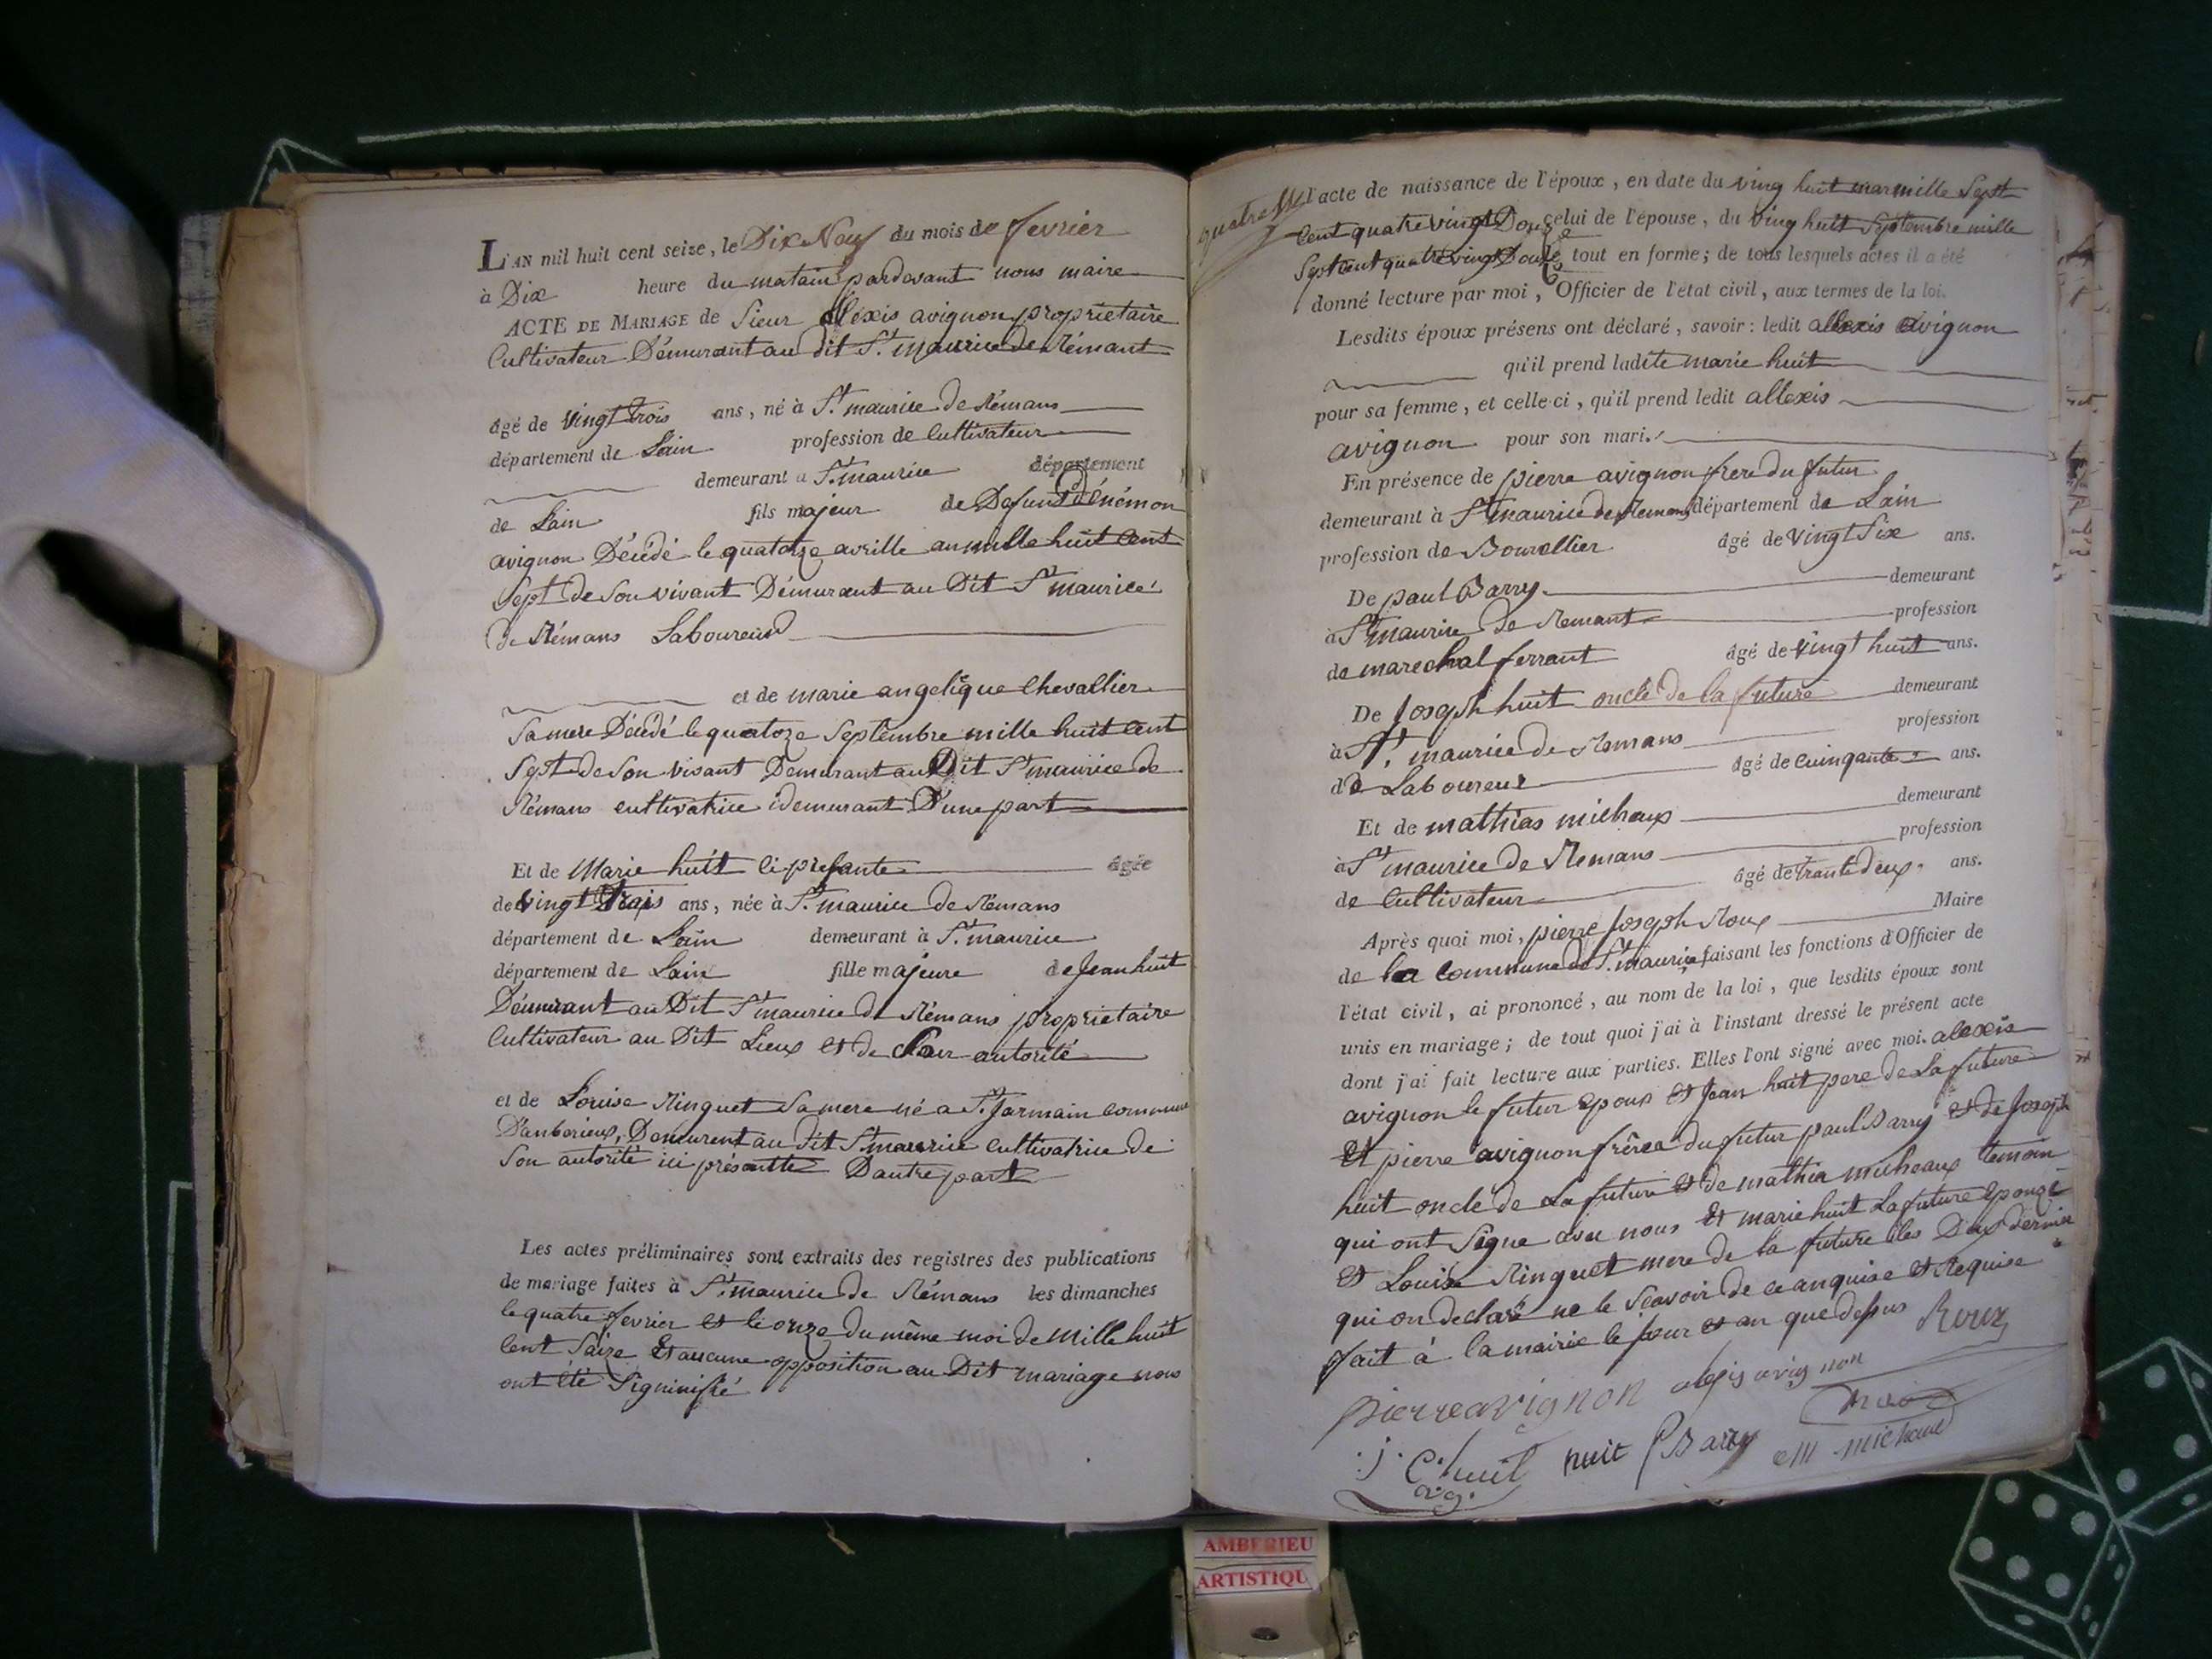 L'AN mil huit cent seize, le Dix Neuf du mois de fevrier
à Dix heure du matain pardevant nous maire
ACTE DE MARIAGE de Sieur allexis avignon propriétaire
Cultivateur Démurant au dit St. maurice de Rémant
âgé de vingt trois ans, né à St. maurice de Rémans
département de Lain profession de Cultivateur
demeurant a St. maurice département
de Lain fils majeur de Defunt
avignon Décédé le quatorze avrille an mille huit Cent
Sept de Son vivant Démurant au Dit St maurice
de Rémans Laboureur
et de marie angelique Chevallier
Sa mere Décédé le quatorze Septembre mille huit Cent
Sept de Son vivant Demurant au Dit St maurice de
Rémans cultivatrice idemurant D'une part
Et de Marie huit ci presante âgée
de vingt Trois ans, née à St. maurice de Rémans
département de Lain demeurant à St. maurice
département de Lain fille majeure de Jean huit
Démurant au Dit St maurice de Rémans propriétaire
Cultivateur au Dit Lieux et de Leur autorité
et de Louise Ringuet Sa mere né a St. Jarmain commune
D'anberieux, Demurent au dit St maurice cultivatrice de
Son autorité ici présantte D'autre part
Les actes préliminaires sont extraits des registres des publications
de mariage faites à St. maurice de Rémans les dimanches
le quatre fevrier et le onze du même moi de Mille huit
Cent Saize Et aucune opposition au Dit mariage nous
ont été Signinifié
l'acte de naissance de l'époux, en date du ving huit mar mille Sept
Cent quatre vingt Douze celui de l'épouse, du ving huit Septembre mille
Sept Cent quatre vingt Douze tout en forme; de tous lesquels actes il a été
donné lecture par moi, Officier de l'état civil, aux termes de la loi.
Lesdits époux présens ont déclaré, savoir: ledit allexis avignon
qu'il prend ladite marie huit
pour sa femme, et celle-ci, qu'il prend ledit allexis
avignon pour son mari.
En présence de pierre avignon frere du futur
demeurant à St maurice de Remans département de Lain
profession de Bourellier âgé de Vingt Six ans.
De paul Barry demeurant
à St maurice de Remant profession
de marechal ferrant âgé de vingt huit ans.
De Joseph huit oncle de la future demeurant
à St. maurice de Remans profession
de Laboureur âgé de cuinqante ans.
Et de mathias micheaux demeurant
à St maurice de Remans profession
de Cultivateur âgé de trante deux. ans.
Après quoi moi, pierre Joseph Roux Maire
de la Commune de St. maurice faisant les fonctions d'Officier de
l'état civil, ai prononcé, au nom de la loi, que lesdits époux sont
unis en mariage; de tout quoi j'ai à l'instant dressé le présent acte
dont j'ai fait lecture aux parties. Elles l'ont signé avec moi. alexis
avignon le futur epoux et Jean huit pere de La future
Et pierre avignon frêre du futur paul Barry et de Joseph
huit oncle de La future et de mathia micheaux temoin
qui ont Signe avec nous Et marie huit La future Epouze
et Louise Ringuet mere de la future les Deux dernier
qui on declaré ne le Scavoir de ce anquise et Requise
fait à la mairie le jour et an que dessus Roux
pierre avignon alexis avignon
huit Barry m michaud